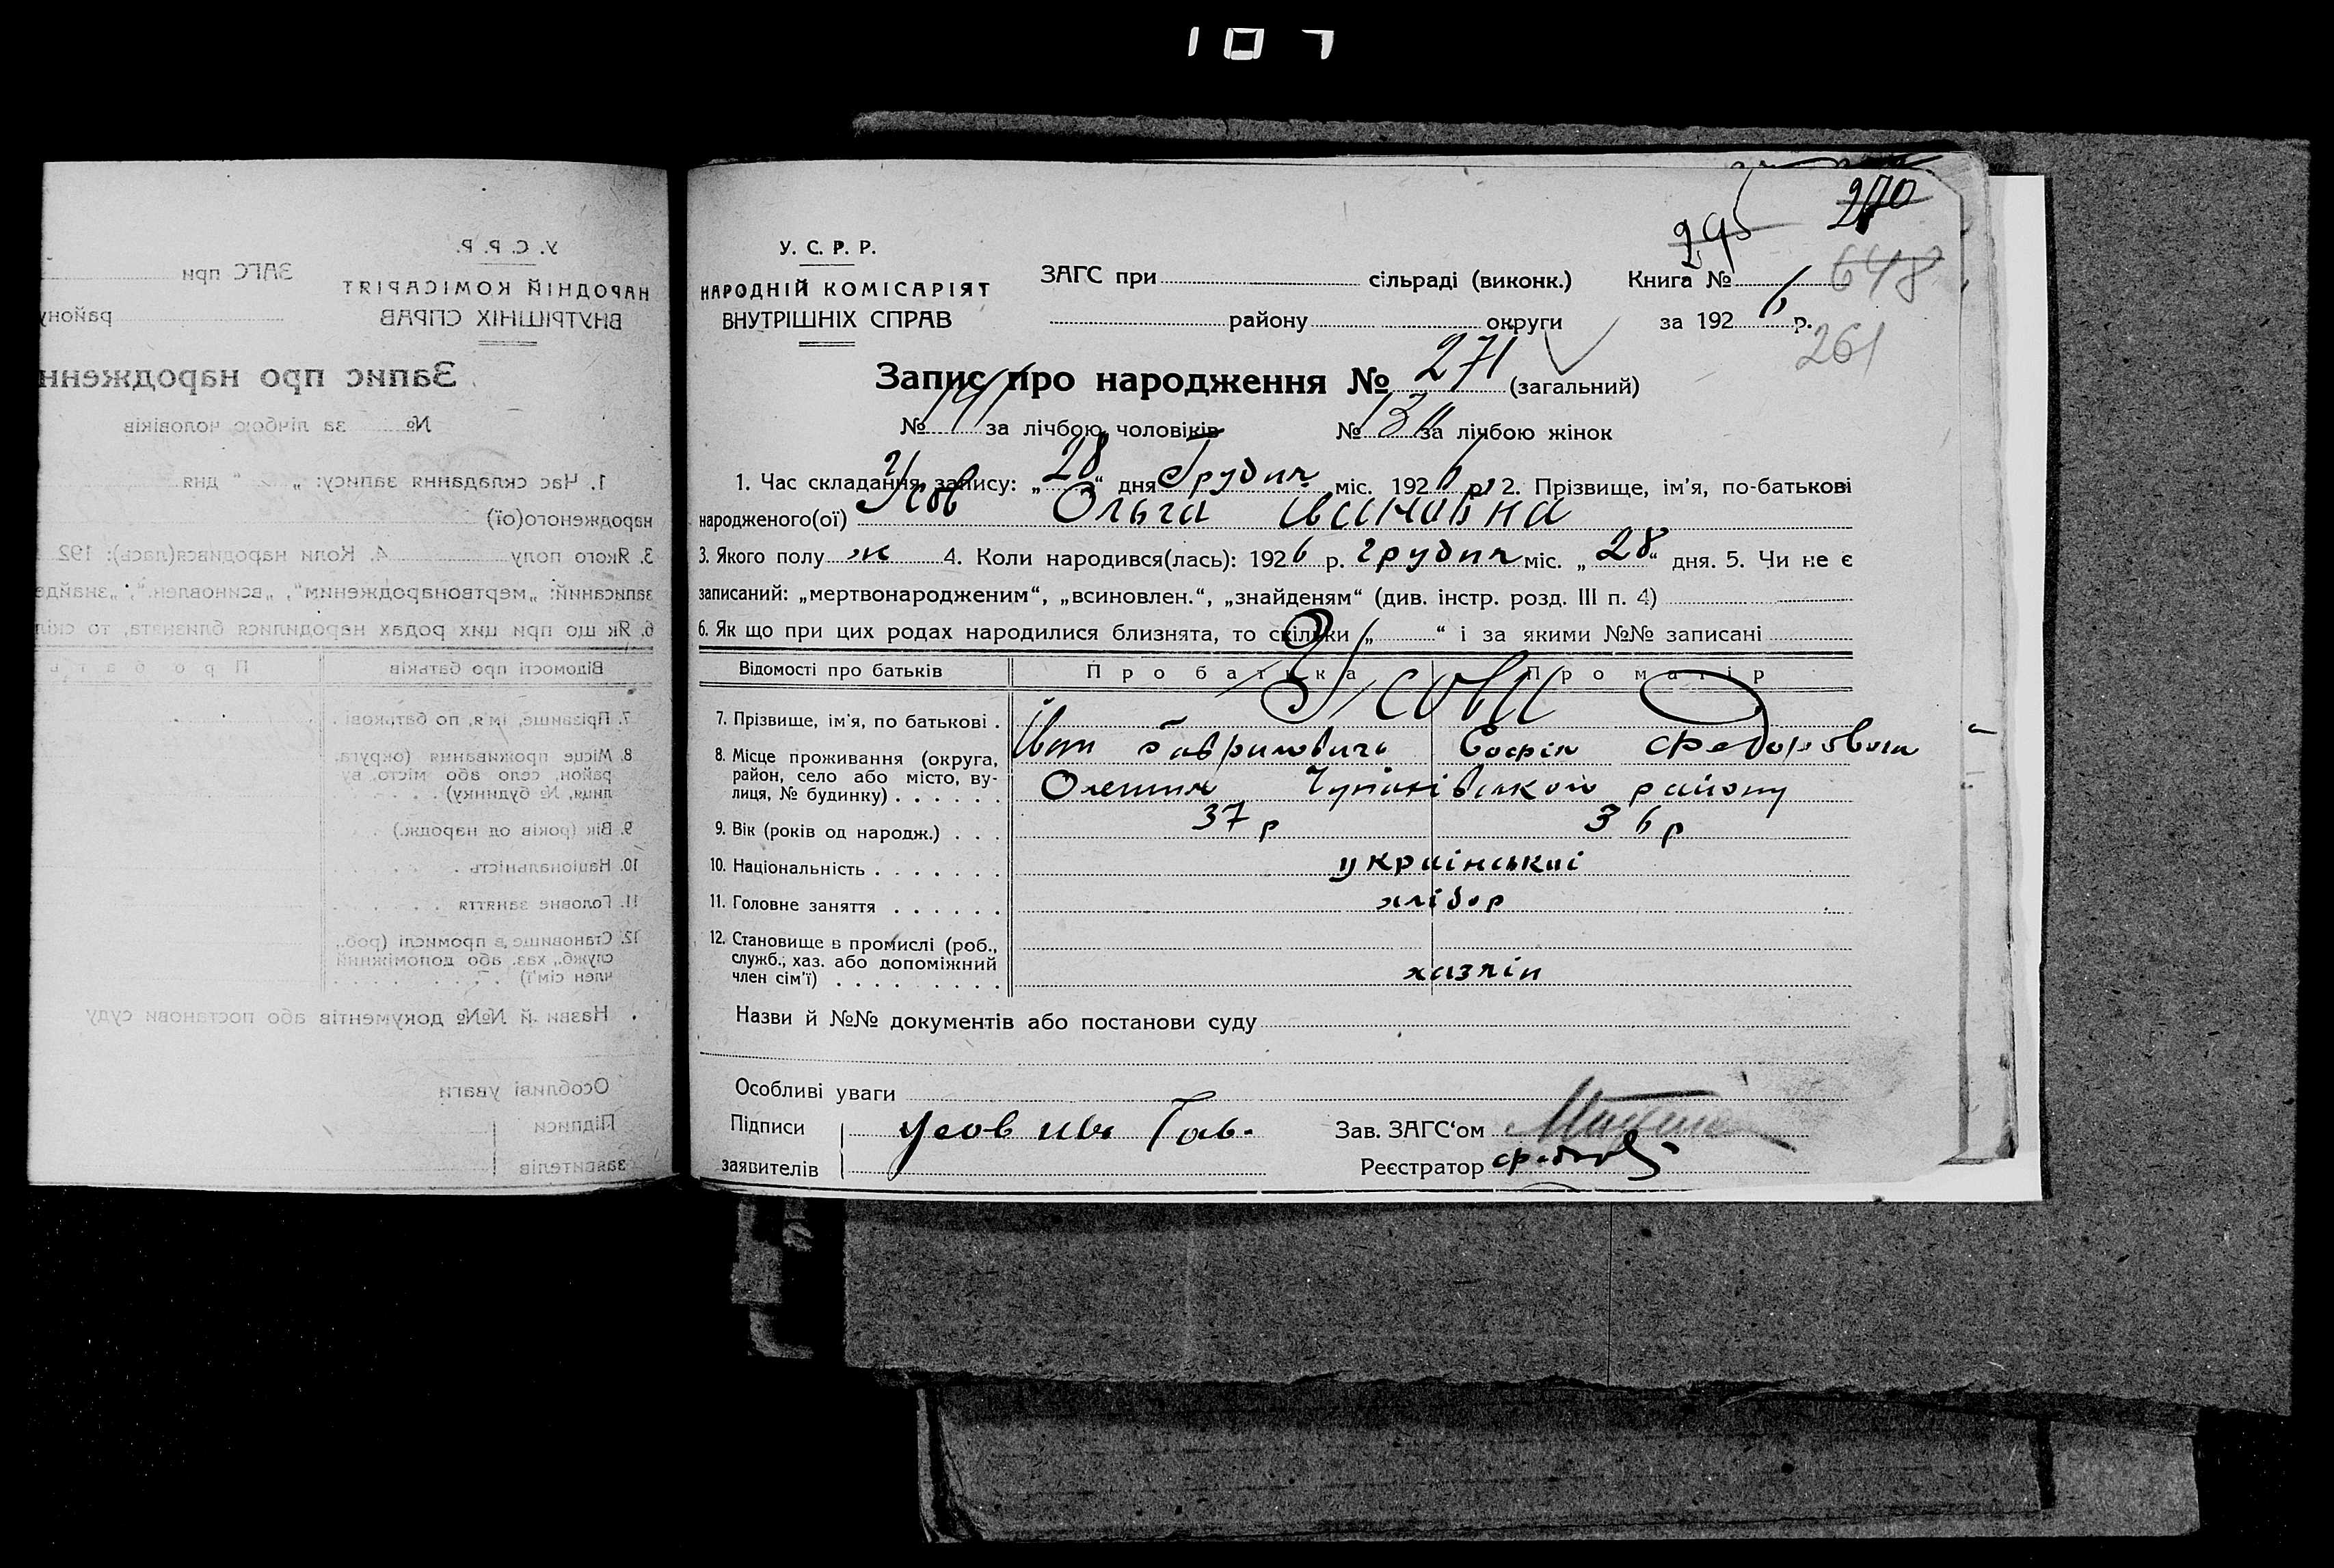 107
У. С. Р. Р.
НАРОДНІЙ КОМІСАРІЯТ
ВНУТРІШНІХ СПРАВ
ЗАГС при
району
Запис про народження
№ за лічбою чоловіків
1. Час складання запису: „ “ дня
народженого(ої)
3. Якого полу 4. Коли народився(лась): 192
записаний: „мертвонародженим“, „всиновлен.“, „знайде
6. Як що при цих родах народилися близнята, то скіл
Відомості про батьків П р о б а т ь
7. Прізвище, ім'я, по батькові .
8. Місце проживання (округа,
район, село або місто, ву-
лиця, № будинку) . . .
9. Вік (років од народж.) . . .
10. Національність . . . .
11. Головне заняття . . . .
12. Становище в промислі (роб.,
служб., хаз. або допоміжний
член сім'ї) . . . .
Назви й №№ документів або постанови суду
Особливі уваги
Підписи
заявителів
270
295
У. С. Р. Р.
НАРОДНІЙ КОМІСАРІЯТ
ВНУТРІШНІХ СПРАВ
ЗАГС при сільраді (виконк.) Книга № 648
району округи за 192 6 р.
261
Запис про народження № 271 (загальний)
№ 141 за лічбою чоловіків № 130 за лічбою жінок
1. Час складання запису: „ 28 “ дня Грудня міс. 192 6 р. 2. Прізвище, ім'я, по-батькові
народженого(ої) Усов Ольга Ивановна
3. Якого полу ж 4. Коли народився(лась): 192 6 р. грудня міс. „ 28 “ дня. 5. Чи не є
записаний: „мертвонародженим“, „всиновлен.“, „знайденям“ (див. інстр. розд. III п. 4)
6. Як що при цих родах народилися близнята, то скільки „ “ і за якими №№ записані
Відомості про батьків П р о б а т ь к а П р о м а т і р
7. Прізвище, ім'я, по батькові . Усови
Иван Гаврилович Софія Федоровна
8. Місце проживання (округа,
район, село або місто, ву-
лиця, № будинку) . . . . . . Олешня Чупахівського району
9. Вік (років од народж.) . . . 37 р 36 р
10. Національність . . . . . . . український
11. Головне заняття . . . . . . хлібор
12. Становище в промислі (роб.,
служб., хаз. або допоміжний
член сім'ї) . . . . . . . . . хазяін
Назви й №№ документів або постанови суду
Особливі уваги
Підписи Усов Ив Гав. Зав. ЗАГС'ом
заявителів Реєстратор